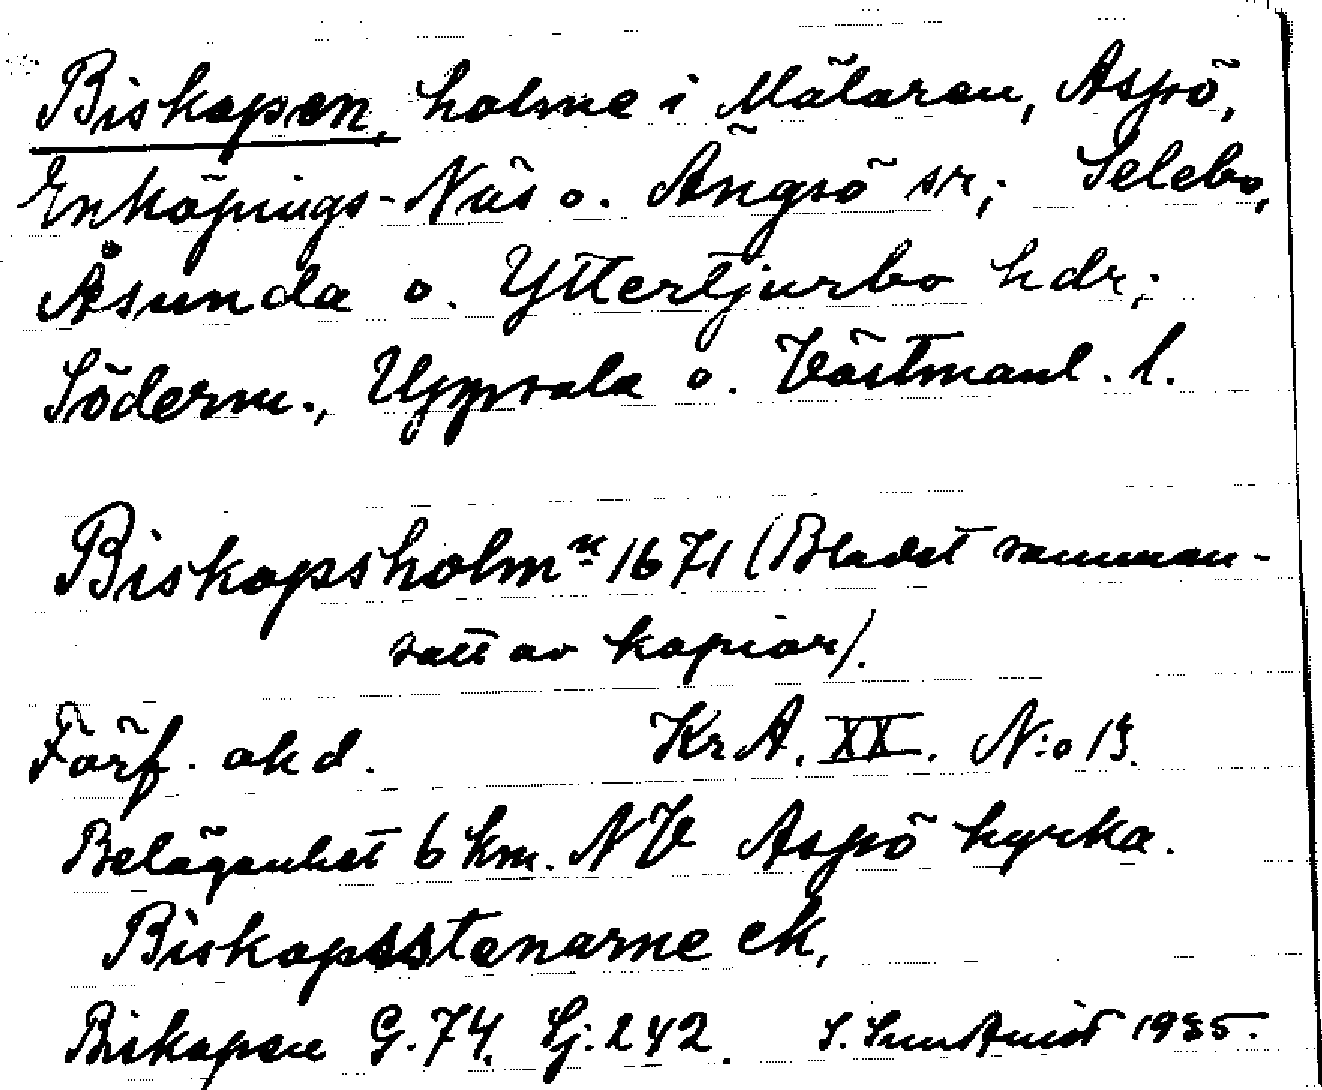 Biskopen, holme i Mälaren, Aspö,
Enköpings-Näs o. Ängsö sr; Selebo,
Åsunda o. Yttertjurbo hdr;
Söderm., Uppsala o. Västmanl. l.
Biskopsholmn 1671 (Bladet samman-
satt av kopior).
Förf. okd. KrA. XX. N:o 13.
Belägenhet 6 km. NV Aspö kyrka.
Biskopsstenarne ek,
Biskopen G. 74. Sj. 242. S. 1935.